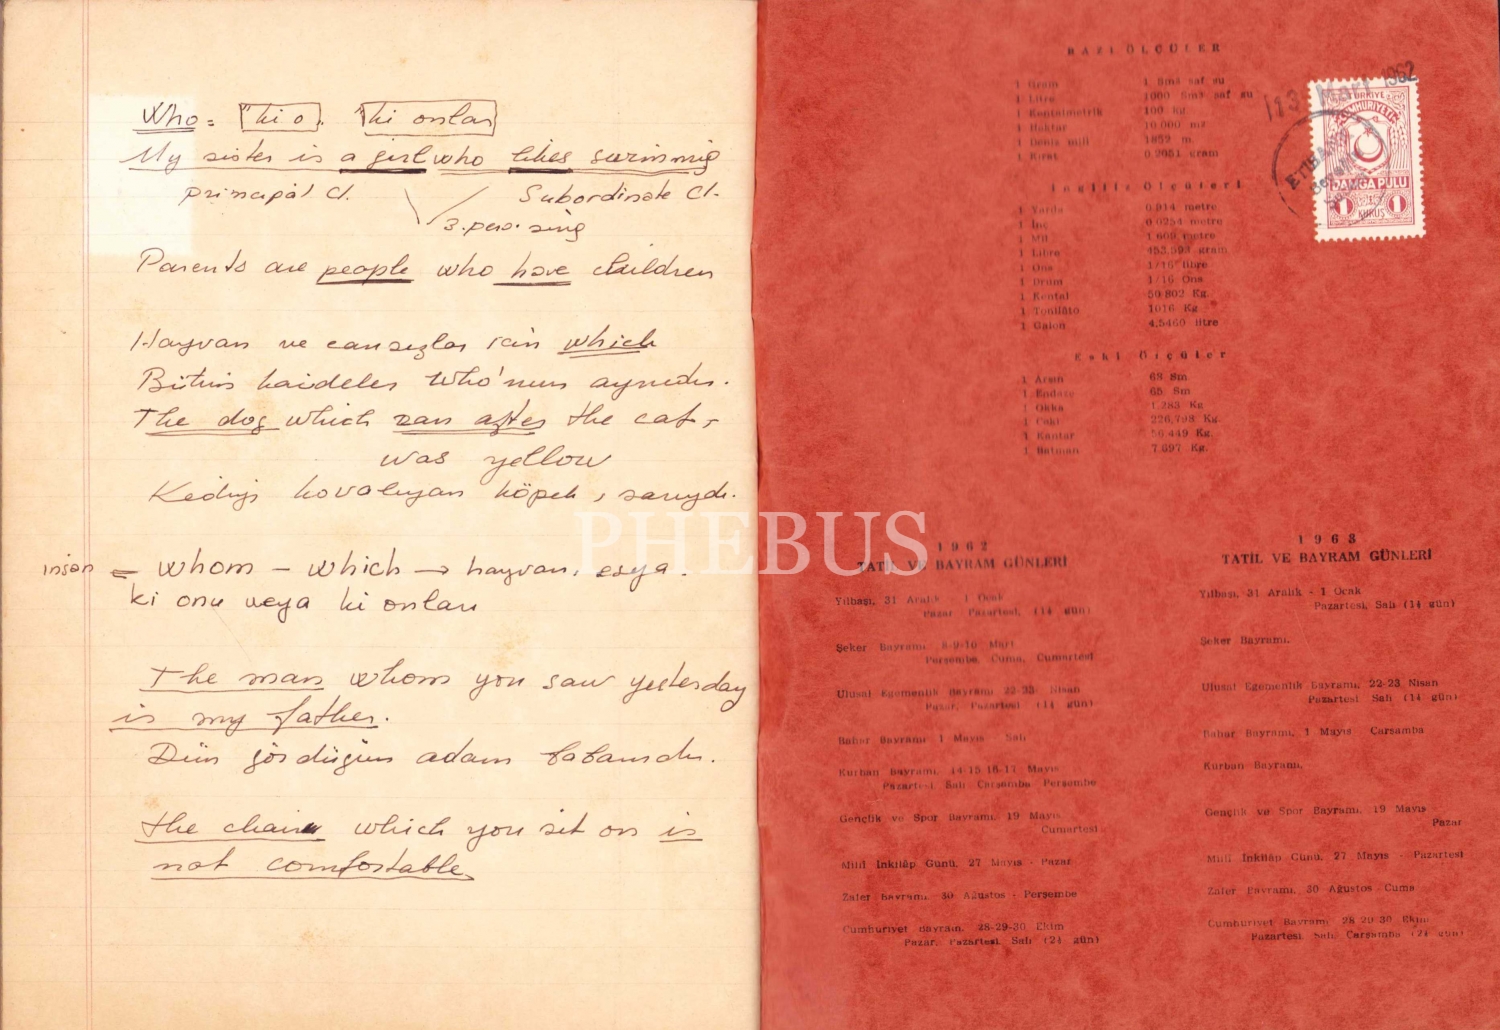 Who = "ki o". "ki onlar"
My sister is a girl who likes swimming
Principal Cl. Subordinate Cl.
3. pers. sing
Parents are people who have children
Hayvan ve cansızlar için which
Bütün kaideler who'nun aynıdır.
The dog which ran after the cat,
was yellow
Kediyi kovalıyan köpek, sarıydı.
insan = whom - which → hayvan, eşya.
ki onu veya ki onları
The man whom you saw yesterday
is my father.
Dün gördüğün adam babamdır.
the chair which you sit on is
not comfortable.
PHEBUS
BAZI ÖLÇÜLER
1 Gram 1 Sm3 saf su
1 Litre 1000 Sm3 saf su
1 Kentalmetrik 100 kg
1 Hektar 10 000 m2
1 Deniz mili 1852 m.
1 Kırat 0.2051 gram
İngiliz Ölçüleri
1 Yarda 0.914 metre
1 İnç 0.0254 metre
1 Mil 1.609 metre
1 Libre 453.593 gram
1 Ons 1/16 libre
1 Dram 1/16 Ons
1 Kental 50.802 Kg.
1 Tonilâto 1016 Kg
1 Galon 4.5460 litre
Eski Ölçüler
1 Arşın 68 Sm
1 Endaze 65 Sm
1 Okka 1.283 Kg
1 Çeki 226,798 Kg.
1 Kantar 56.449 Kg.
1 Batman 7.697 Kg.
13 Mart 1962
TÜRKİYE
CUMHURİYETİ
DAMGA PULU
1 KURUŞ 1
ETİBANK
1962
TATİL VE BAYRAM GÜNLERİ
Yılbaşı, 31 Aralık - 1 Ocak
Pazar, Pazartesi, (1½ gün)
Şeker Bayramı 8-9-10 Mart
Perşembe, Cuma, Cumartesi
Ulusal Egemenlik Bayramı 22-23 Nisan
Pazar, Pazartesi (1½ gün)
Bahar Bayramı 1 Mayıs Salı
Kurban Bayramı, 14-15-16-17 Mayıs
Pazartesi, Salı Çarşamba Perşembe
Gençlik ve Spor Bayramı, 19 Mayıs
Cumartesi
Millî İnkılâp Günü, 27 Mayıs - Pazar
Zafer Bayramı, 30 Ağustos - Perşembe
Cumhuriyet Bayramı, 28-29-30 Ekim
Pazar, Pazartesi, Salı (2½ gün)
1963
TATİL VE BAYRAM GÜNLERİ
Yılbaşı, 31 Aralık - 1 Ocak
Pazartesi, Salı (1½ gün)
Şeker Bayramı,
Ulusal Egemenlik Bayramı, 22-23 Nisan
Pazartesi Salı (1½ gün)
Bahar Bayramı, 1 Mayıs Çarşamba
Kurban Bayramı,
Gençlik ve Spor Bayramı, 19 Mayıs
Pazar
Millî İnkılâp Günü, 27 Mayıs - Pazartesi
Zafer Bayramı, 30 Ağustos - Cuma
Cumhuriyet Bayramı 28-29-30 Ekim
Pazartesi, Salı, Çarşamba (2½ gün)